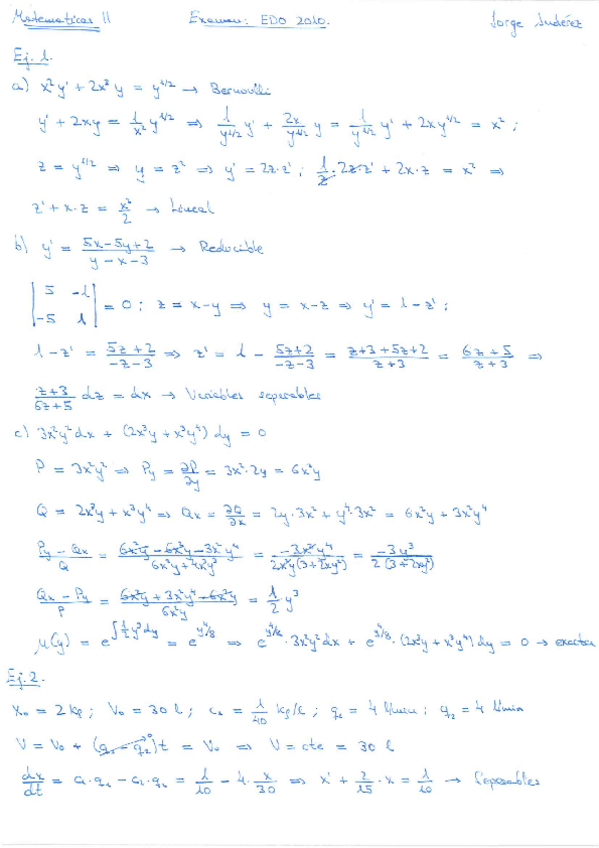 Matematicas II Examen: EDO 2010. Jorge Judérez
Ej. 1.
a) x²y' + 2x³y = y^{1/2} → Bernoulli
y' + 2xy = 1/x² y^{1/2} ⇒ 1/y^{1/2} y' + 2x/y^{1/2} y = 1/y^{1/2} y' + 2xy^{1/2} = x² ;
z = y^{1/2} ⇒ y = z² ⇒ y' = 2z·z' ; 1/z · 2z·z' + 2x·z = x² ⇒
z' + x·z = x²/2 → Lineal
b) y' = (5x-5y+2)/(y-x-3) → Reducible
|5 -1; -5 1| = 0 ; z = x-y ⇒ y = x-z ⇒ y' = 1-z' ;
1-z' = (5z+2)/(-z-3) ⇒ z' = 1 - (5z+2)/(-z-3) = (z+3+5z+2)/(z+3) = (6z+5)/(z+3) ⇒
(z+3)/(6z+5) dz = dx → Variables separables
c) 3x²y²dx + (2x³y + x³y⁴) dy = 0
P = 3x²y² ⇒ Py = ∂P/∂y = 3x²·2y = 6x²y
Q = 2x³y + x³y⁴ ⇒ Qx = ∂Q/∂x = 2y·3x² + y⁴·3x² = 6x²y + 3x²y⁴
(Py - Qx)/Q = = =
(Qx - Py)/P = (6x²y + 3x²y⁴ - 6x²y)/6x²y = 1/2 y³
μ(y) = e^{∫½y³dy} = e^{y⁴/8} ⇒ e^{y⁴/8}·3x²y²dx + e^{y⁴/8}·(2x³y + x³y⁴) dy = 0 → exacta
Ej. 2.
x₀ = 2 kg ; V₀ = 30 l ; c₁ = 1/40 kg/l ; q₁ = 4 l/min ; q₂ = 4 l/min
V = V₀ + (q₁ - q₂)t = V₀ ⇒ V = cte = 30 l
dx/dt = c₁·q₁ - c₂·q₂ = 1/10 - 4·x/30 ⇒ x' + 2/15 · x = 1/10 → Separables